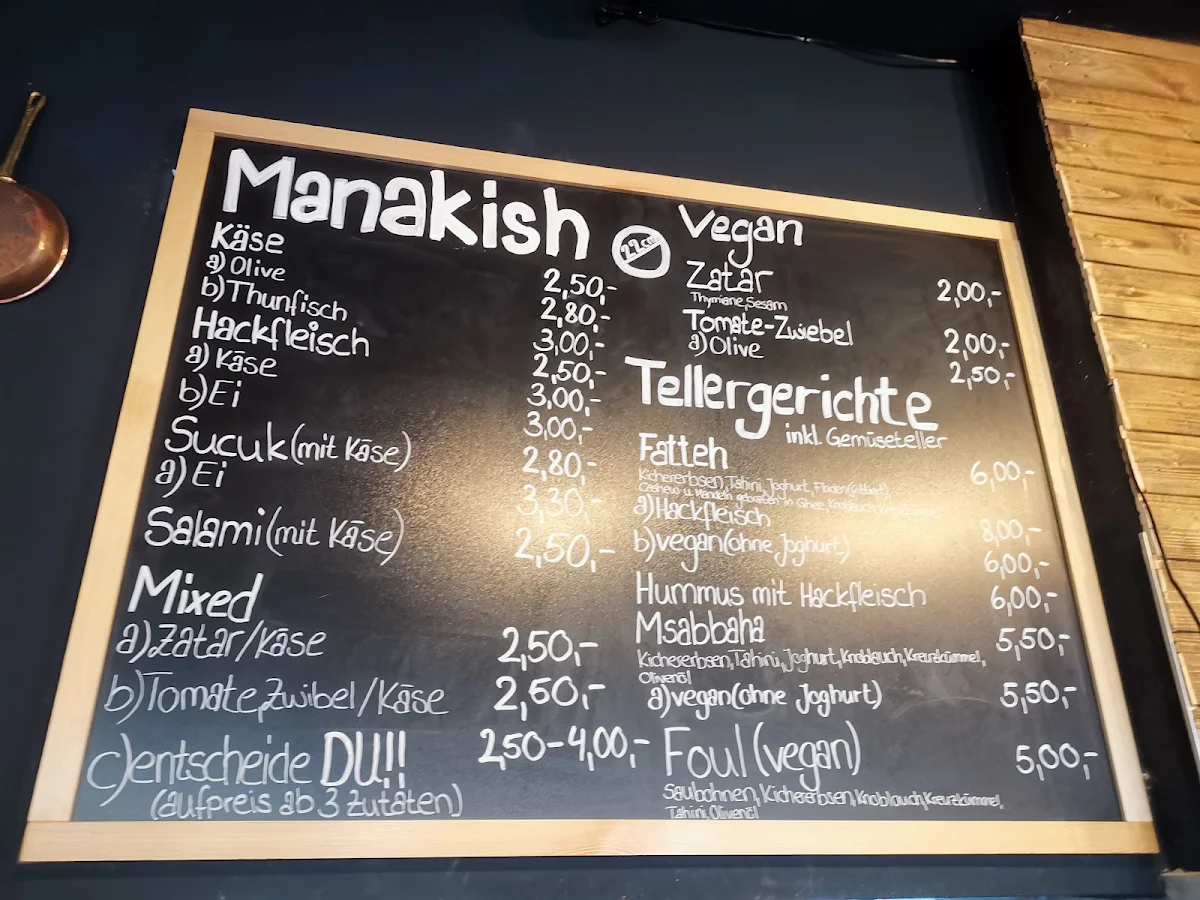 Manakish
22cm
Käse 2,50,-
a) Olive 2,80,-
b) Thunfisch 3,00,-
Hackfleisch 2,50,-
a) Käse 3,00,-
b) Ei 3,00,-
Sucuk (mit Käse) 2,80,-
a) Ei 3,30,-
Salami (mit Käse) 2,50,-
Mixed
a) Zatar/Käse 2,50,-
b) Tomate, Zwibel/Käse 2,50,-
c) entscheide DU!! 2,50-4,00,-
(aufpreis ab 3 Zutaten)
Vegan
Zatar 2,00,-
Thymiane, Sesam
Tomate-Zwiebel 2,00,-
a) Olive 2,50,-
Tellergerichte
inkl. Gemüseteller
Fatteh 6,00,-
Kichererbsen, Tahini, Joghurt, Fladen
Cashew u. Mandeln gebraten in Ghee, Knoblauch
a) Hackfleisch 8,00,-
b) vegan (ohne Joghurt) 6,00,-
Hummus mit Hackfleisch 6,00,-
Msabbaha 5,50,-
Kichererbsen, Tahini, Joghurt, Knoblauch, Kreuzkümmel,
Olivenöl
a) vegan (ohne Joghurt) 5,50,-
Foul (vegan) 5,00,-
Saubohnen, Kichererbsen, Knoblauch, Kreuzkümmel,
Tahini, Olivenöl